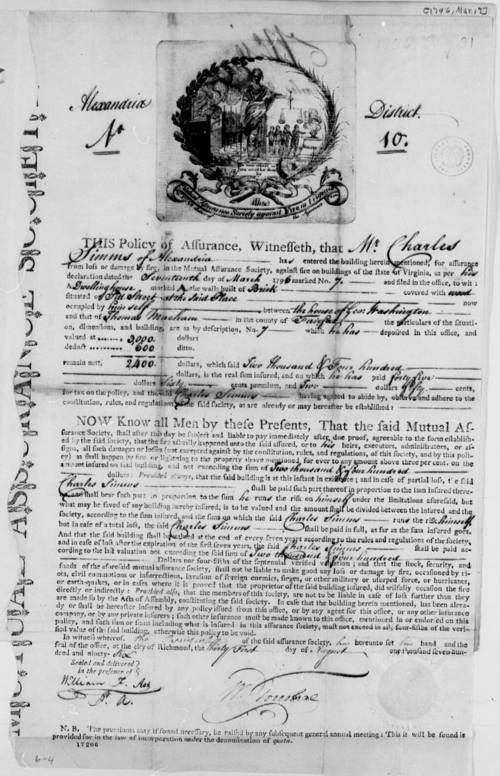 [1796, Mar. 17]
Alexandria
District.
No
10.
Mutual Assurance Society against Fire in Virginia
THIS Policy of Assurance, Witnesseth, that Mr. Charles
Simms of Alexandria has entered the building herein mentioned, for assurance
from loss or damage by fire, in the Mutual Assurance Society, against fire on buildings of the state of Virginia, as per his
declaration dated the Seventeenth day of March 1796 marked No. 7. and filed in the office, to wit:
a Dwellinghouse marked A the walls built of Brick covered with wood
situated on Pitt Street at the said Place now
occupied by himself between the house of Geo. Washington
and that of Thomas in the county of Fairfax the particulars of the situati-
on, dimensions, and building, are as by description, No. 7 which he has deposited in this office, and
valued at 3,000 dollars
deduct 600 ditto.
remain nett. 2400 dollars, which said Two thousand & Four hundred
dollars, is the real sum insured, and on which he has paid forty five
dollars sixty cents premium, and Two dollars fifty cents,
for tax on the policy, and the said Charles Simms having agreed to abide by, observe and adhere to the
constitution, rules, and regulations of the said society, as are already or may hereafter be established:
NOW Know all Men by these Presents, That the said Mutual As-
surance Society, shall after this day be subject and liable to pay immediately after, due proof, agreeable to the form establish-
ed by the said society, that the fire actually happened unto the said assured, or to his heirs, executors, administrators, or as-
signs, all such damages or losses (not excepted against by the constitution, rules, and regulations, of this society, and by this poli-
cy) as shall happen by fire respecting to the property above mentioned, for ever to any amount above three per cent. on the
amount insured on said building, and not exceeding the sum of Two thousand & four hundred
dollars: Provided always, that the said building is at this instant in existence; and in case of partial loss, the said
Charles Simms shall be paid such part thereof in proportion to the sum insured there-
on, and shall bear such part in proportion to the sum he runs the risk on himself under the limitations aforesaid, but
what may be saved of any building hereby insured, is to be valued and the amount shall be divided between the insured and the
society, according to the sum insured, and the sum on which the said Charles Simms runs the risk himself.
but in case of a total loss, the said Charles Simms shall be paid in full, as far as the sums insured go.
And that the said building shall be valued at the end of every seven years according to the rules and regulations of the society,
and in case of loss after the expiration of the first seven years, the said Charles Simms shall be paid ac-
cording to the last valuation not exceeding the said sum of Two thousand & four hundred
Dollars or four-fifths of the septennial verified valuation; and that the stock, security, and
funds of the aforesaid mutual assurance society, shall not be liable to make good any loss or damage by fire, occasioned by ri-
ots, civil commotions or insurrections, invasion of foreign enemies, sieges, or other military or usurped force, or hurricanes,
or earth-quakes, or in cases where it is proved that the proprietor of the said building insured, did wilfully occasion the fire
directly or indirectly: Provided also, that the members of this society, are not to be liable in case of loss further than they
are made so by the Acts of Assembly, constituting the said society. In case that the building herein mentioned, has been alrea-
dy or shall be hereafter insured by any policy issued from this office, or by any agent for this office, or any other insurance
company, or by any private insurers; each other insurance must be made known to this office, mentioned in or endorsed on this
policy, and such sum or sums including what is insured in this assurance society, must not exceed in all, four-fifths of the veri-
fied value of the said buildings, otherwise this policy to be void.
In witness whereof, the of the said assurance society, has hereunto set his hand and the
seal of the office, at the city of Richmond, the thirty first day of August one thousand seven hun-
dred and ninety Six
Sealed and delivered
in the presence of
William F.
N. B. The premiums may if found necessary, be raised by any subsequent general annual meeting: This will be found is
provided for in the law of incorporation under the denomination of quota.
17206
6-4